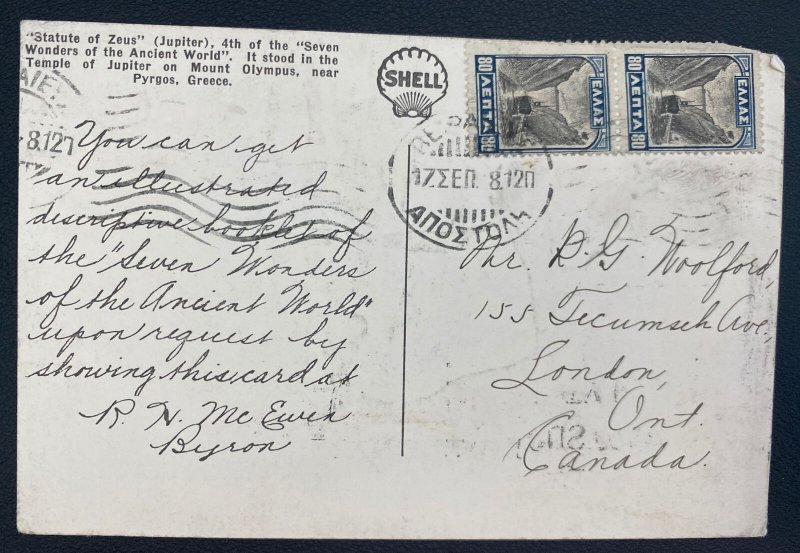 "Statute of Zeus" (Jupiter), 4th of the "Seven
Wonders of the Ancient World". It stood in the
Temple of Jupiter on Mount Olympus, near
Pyrgos, Greece.
SHELL
80 ΛΕΠΤΑ 80
ΕΛΛΑΣ
80 ΛΕΠΤΑ 80
ΕΛΛΑΣ
8.12Π
17ΣΕΠ. 8.12Π
ΑΠΟΣΤΟΛΗ
You can get
an illustrated
descriptive booklet of
the "Seven Wonders
of the Ancient World"
upon request by
showing this card at
R. H. McEwen
Byron
Mr. R. G. Woolford,
155 Tecumseh Ave.,
London,
Ont.
Canada.